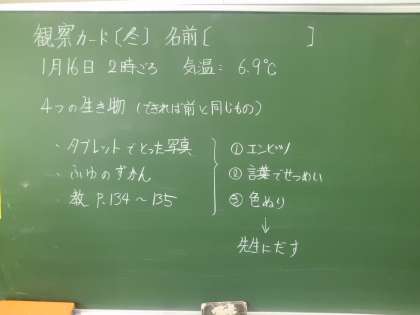 観察カード〔冬〕 名前[          ]
1月16日 2時ごろ 気温= 6.9℃
4つの生き物 (できれば前と同じもの)
・タブレットでとった写真
・ふゆのずかん
・教 P.134〜135
① エンピツ
② 言葉でせつめい
③ 色ぬり
↓
先生にだす